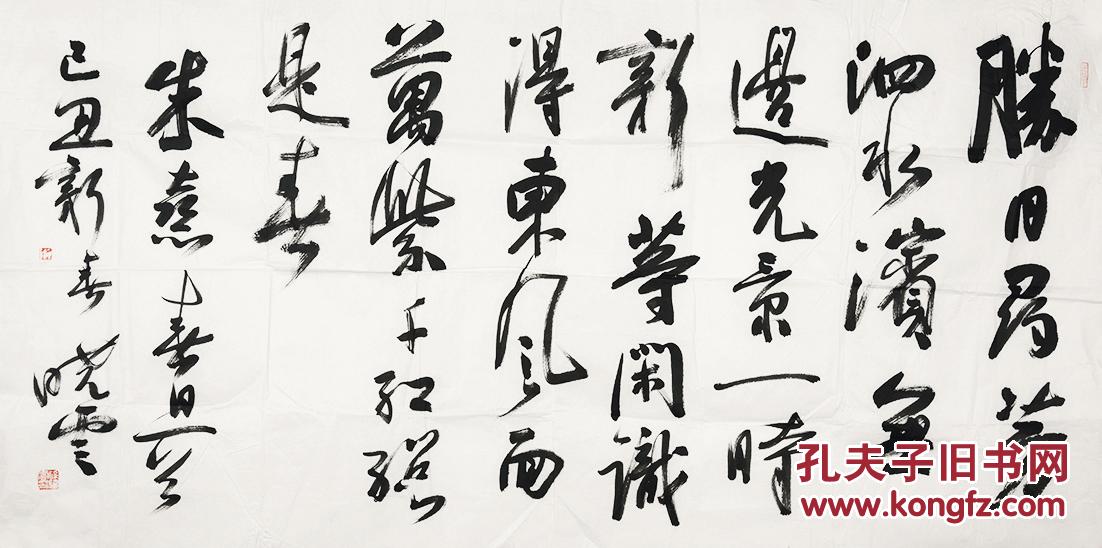 勝日尋芳
泗水濱無
邊光景一時
新等閑識
得東風面
萬紫千紅總
是春
朱熹春日一首
己丑新春曉雲
孔夫子旧书网
www.kongfz.com